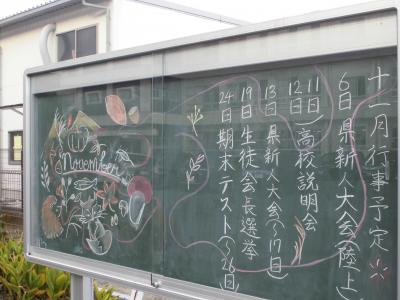 十一月行事予定
6日県新人大会(陸上)
11日
12日
高校説明会
13日県新人大会(〜17日)
19日生徒会長選挙
24日期末テスト(〜26日)
November